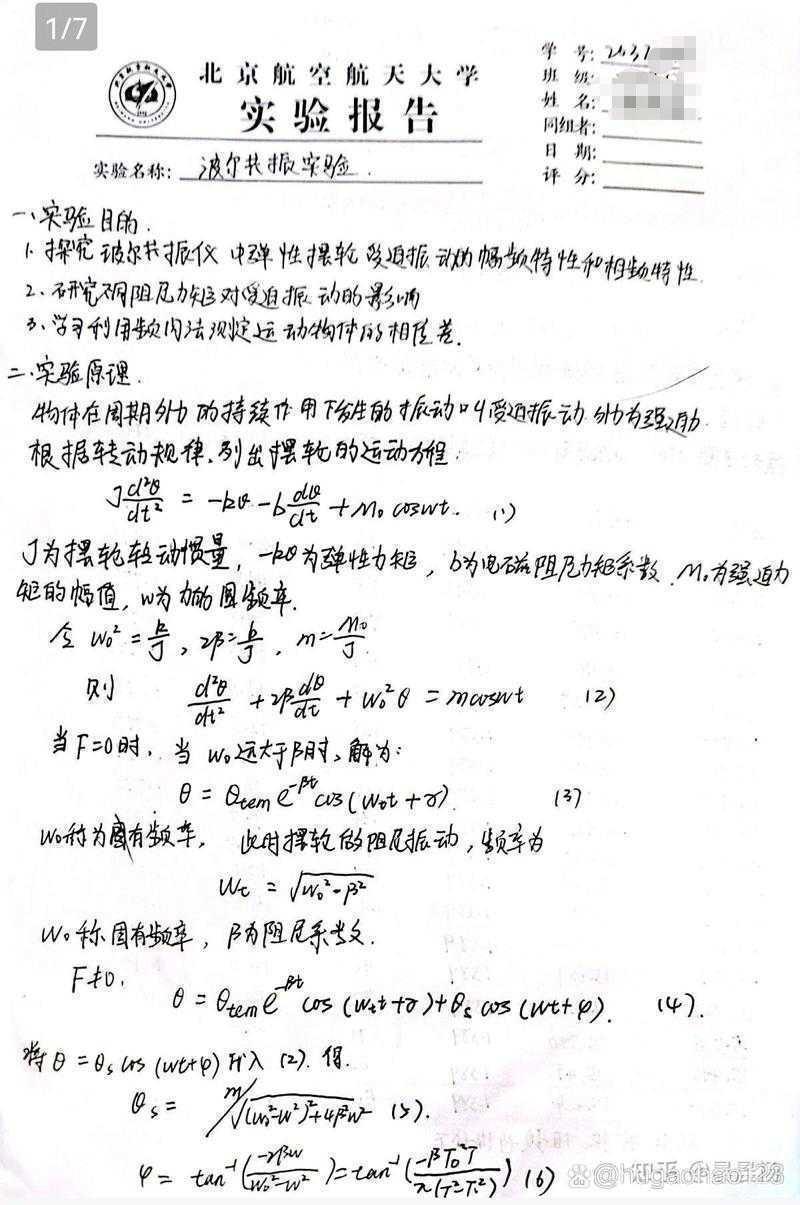 1/7
北京航空航天大学
实验报告
学 号: 2137
班 级:
姓 名:
同组者:
日 期:
评 分:
实验名称: 波尔共振实验.
一、实验目的.
1. 探究波尔共振仪中弹性摆轮受迫振动的幅频特性和相频特性.
2、研究不同阻尼力矩对受迫振动的影响
3、学习利用频闪法测定运动物体的相位差.
二、实验原理.
物体在周期外力的持续作用下发生的振动叫受迫振动 外力为强迫力.
根据转动规律、列出摆轮的运动方程:
J d²θ/dt² = -kθ - b dθ/dt + M₀ cosωt. (1)
J为摆轮转动惯量, -kθ为弹性力矩, b为电磁阻尼力矩系数. M₀为强迫力
矩的幅值, ω为力的圆频率.
令 ω₀² = k/J, 2β = b/J, m = M₀/J
则 d²θ/dt² + 2β dθ/dt + ω₀²θ = m cosωt (2)
当F=0时. 当ω₀远大于β时, 解为:
θ = θtem e^-βt cos(ωtt+γ). (3)
ω₀称为固有频率, 此时摆轮做阻尼振动, 频率为
ωt = √(ω₀²-β²)
ω₀称固有频率, β为阻尼系数.
F≠0.
θ = θtem e^-βt cos(ωtt+γ)+θs cos(ωt+φ). (4).
将θ=θs cos(ωt+φ)代入(2). 得.
θs = m/√((ω₀²-ω²)²+4β²ω²) (5).
φ = tan⁻¹(-2βω/(ω₀²-ω²)) = tan⁻¹(-βT₀²T/(π(T²-T₀²))) (6)
知乎